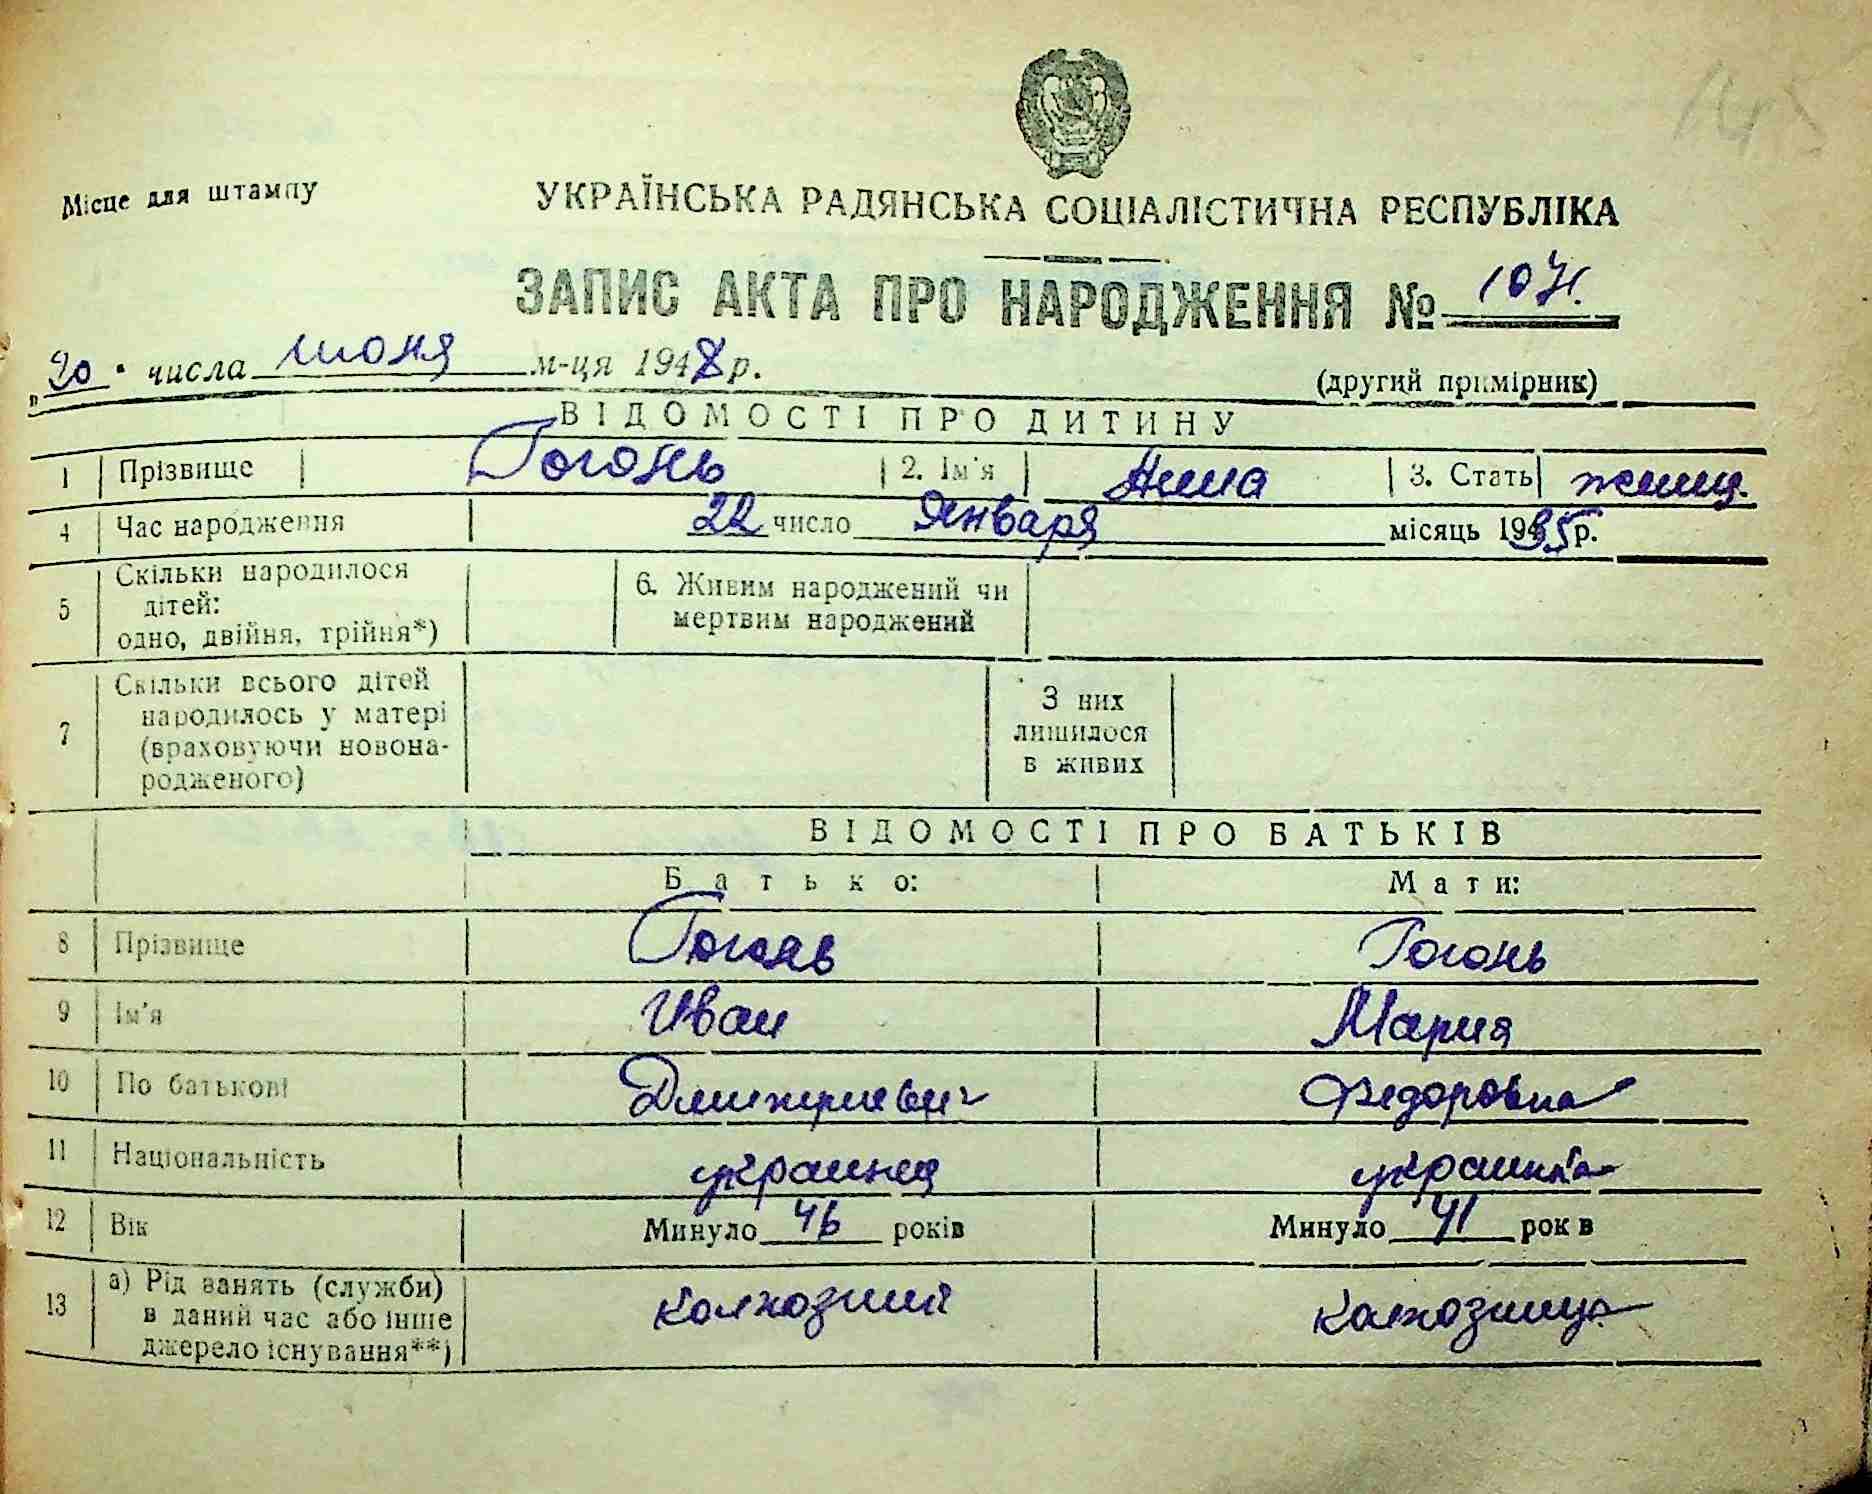 145
Місце для штампу
УКРАЇНСЬКА РАДЯНСЬКА СОЦІАЛІСТИЧНА РЕСПУБЛІКА
ЗАПИС АКТА ПРО НАРОДЖЕННЯ № 1071.
„20" числа июня м-ця 1948 р.
(другий примірник)
ВІДОМОСТІ ПРО ДИТИНУ
1 Прізвище Гогонь 2. Ім'я Нина 3. Стать женщ.
4 Час народження 22 число Января місяць 1935 р.
5 Скільки народилося дітей: одно, двійня, трійня*) 6. Живим народжений чи мертвим народжений
7 Скільки всього дітей народилось у матері (враховуючи новонародженого) З них лишилося в живих
ВІДОМОСТІ ПРО БАТЬКІВ
Батько: Мати:
8 Прізвище Гогонь Гогонь
9 Ім'я Иван Мария
10 По батькові Дмитриевич Федоровна
11 Національність украинец украинка
12 Вік Минуло 46 років Минуло 41 рок в
13 а) Рід занять (служби) в даний час або інше джерело існування**) колхозник колхозница